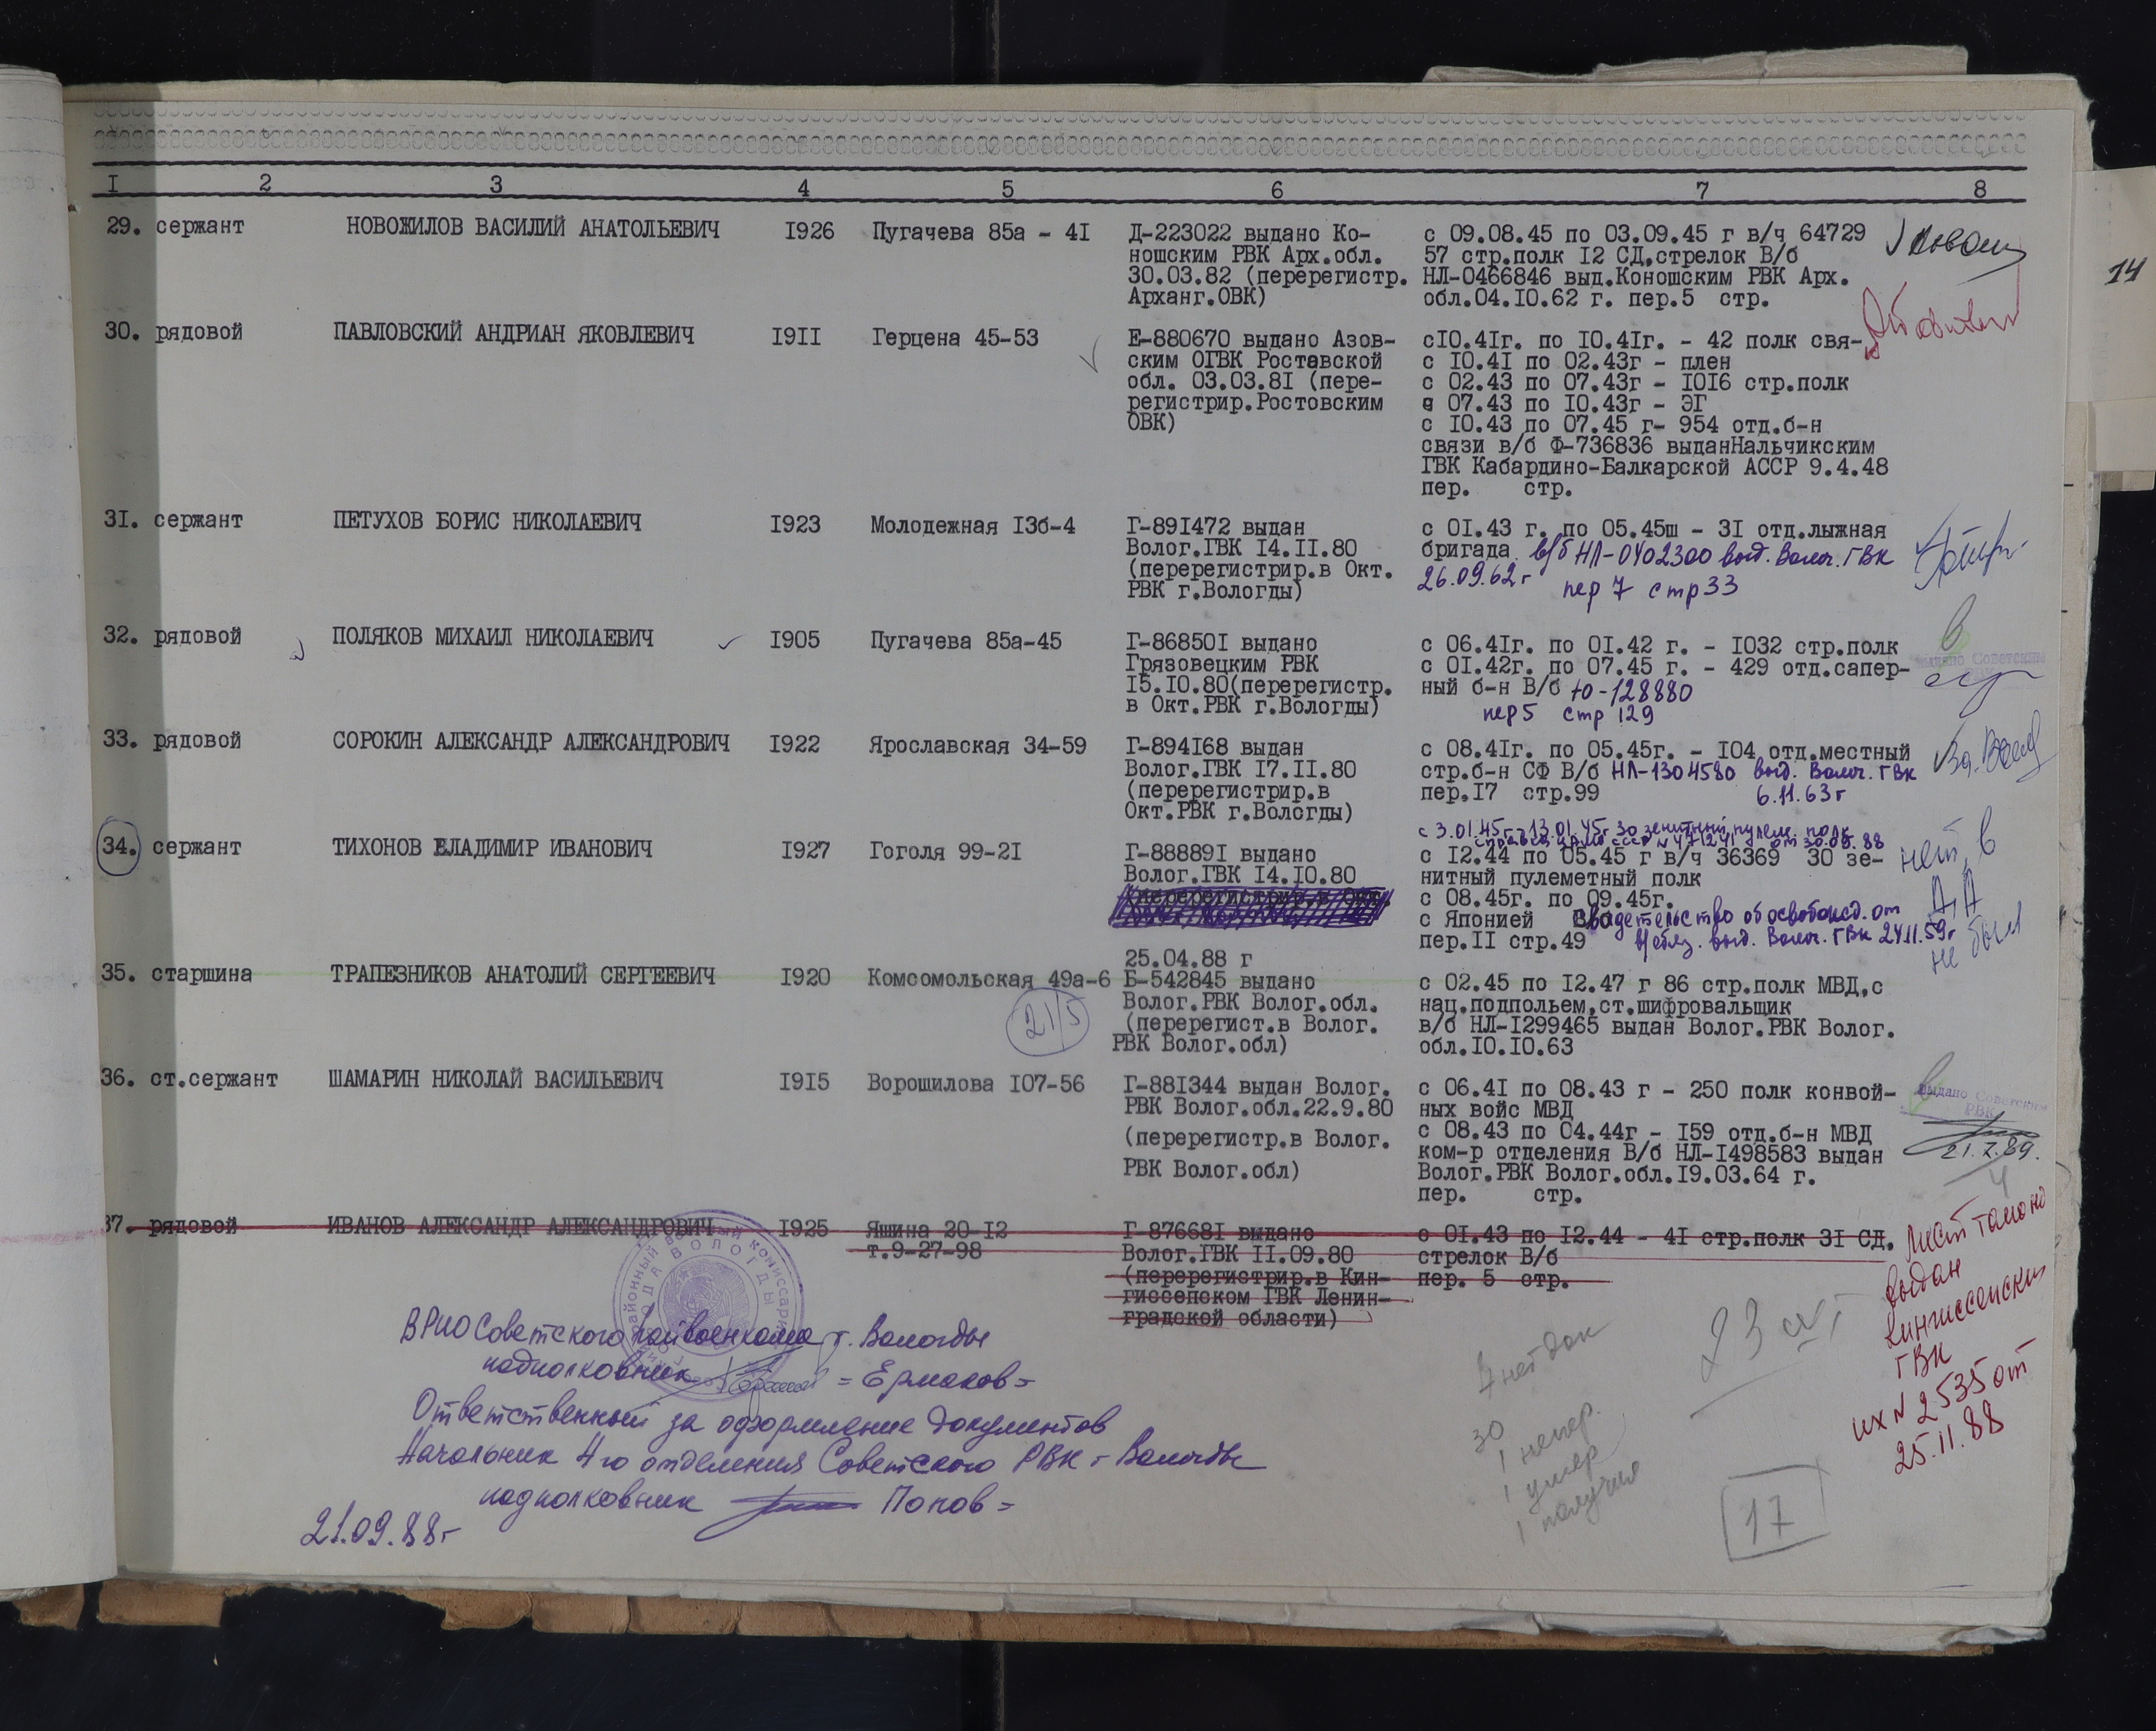 I 2 3 4 5 6 7 8
29. сержант НОВОЖИЛОВ ВАСИЛИЙ АНАТОЛЬЕВИЧ I926 Пугачева 85а - 4I Д-223022 выдано Ко- с 09.08.45 по 03.09.45 г в/ч 64729
ношским РВК Арх.обл. 57 стр.полк I2 СД,стрелок В/б
30.03.82 (перерегистр. НЛ-0466846 выд.Коношским РВК Арх.
Арханг.ОВК) обл.04.I0.62 г. пер.5 стр.
14
30. рядовой ПАВЛОВСКИЙ АНДРИАН ЯКОВЛЕВИЧ I9II Герцена 45-53 Е-880670 выдано Азов- сI0.4Iг. по I0.4Iг. - 42 полк свя-
ским ОГВК Ростовской с I0.4I по 02.43г - плен
обл. 03.03.8I (пере- с 02.43 по 07.43г - I0I6 стр.полк
регистрир.Ростовским с 07.43 по I0.43г - ЭГ
ОВК) с I0.43 по 07.45 г- 954 отд.б-н
связи в/б Ф-736836 выданНальчикским
ГВК Кабардино-Балкарской АССР 9.4.48
пер. стр.
3I. сержант ПЕТУХОВ БОРИС НИКОЛАЕВИЧ I923 Молодежная I3б-4 Г-89I472 выдан с 0I.43 г. по 05.45ш - 3I отд.лыжная
Волог.ГВК I4.II.80 бригада в/б НЛ-0402300 выд. Волог. ГВК
(перерегистрир.в Окт. 26.09.62г
РВК г.Вологды) пер 7 стр 33
32. рядовой ПОЛЯКОВ МИХАИЛ НИКОЛАЕВИЧ I905 Пугачева 85а-45 Г-86850I выдано с 06.4Iг. по 0I.42 г. - I032 стр.полк
Грязовецким РВК с 0I.42г. по 07.45 г. - 429 отд.сапер- выдано Советским
I5.I0.80(перерегистр. ный б-н В/б Ю-128880
в Окт.РВК г.Вологды) пер 5 стр 129
33. рядовой СОРОКИН АЛЕКСАНДР АЛЕКСАНДРОВИЧ I922 Ярославская 34-59 Г-894I68 выдан с 08.4Iг. по 05.45г. - I04 отд.местный
Волог.ГВК I7.II.80 стр.б-н СФ В/б НЛ-1304580 выд. Волог. ГВК
(перерегистрир.в пер.I7 стр.99 6.11.63г
Окт.РВК г.Вологды)
с 3.01.45г-13.01.45г 30 зенитный пулем. полк
34. сержант ТИХОНОВ ВЛАДИМИР ИВАНОВИЧ I927 Гоголя 99-2I Г-88889I выдано с I2.44 по 05.45 г в/ч 36369 30 зе- нет в
Волог.ГВК I4.I0.80 нитный пулеметный полк
с 08.45г. по 09.45г. Д,А
с Японией Свидетельство об освобожд. от
пер.II стр.49 в/обяз. выд. Волог. ГВК 24.11.59г не был
25.04.88 г
35. старшина ТРАПЕЗНИКОВ АНАТОЛИЙ СЕРГЕЕВИЧ I920 Комсомольская 49а-6 Б-542845 выдано с 02.45 по I2.47 г 86 стр.полк МВД,с
21/5 Волог.РВК Волог.обл. нац.подпольем,ст.шифровальщик
(перерегист.в Волог. в/б НЛ-I299465 выдан Волог.РВК Волог.
РВК Волог.обл) обл.I0.I0.63
36. ст.сержант ШАМАРИН НИКОЛАЙ ВАСИЛЬЕВИЧ I9I5 Ворошилова I07-56 Г-88I344 выдан Волог. с 06.4I по 08.43 г - 250 полк конвой- выдано Советским
РВК Волог.обл.22.9.80 ных войс МВД РВК
(перерегистр.в Волог. с 08.43 по 04.44г - I59 отд.б-н МВД
ком-р отделения В/б НЛ-I498583 выдан 21.7.89.
РВК Волог.обл) Волог.РВК Волог.обл.I9.03.64 г.
пер. стр.
37. рядовой ИВАНОВ АЛЕКСАНДР АЛЕКСАНДРОВИЧ I925 Яшина 20-I2 Г-87668I выдано с 0I.43 по I2.44 - 4I стр.полк 3I СД.
т.9-27-98 Волог.ГВК II.09.80 стрелок В/б
(перерегистрир.в Кин- пер. 5 стр.
гиссепском ГВК Ленин-
градской области)
Лист талона
выдан
кингиссепским
ГВК
исх N 2535 от
25.11.88
ВРИО Советского райвоенкома г. Вологды
подполковник =Ермаков=
Ответственный за оформление документов
Начальник 4го отделения Советского РВК г Вологды
подполковник Попов=
21.09.88г
7 нет док
30
1 непер.
1 умер
1 получил
23
17